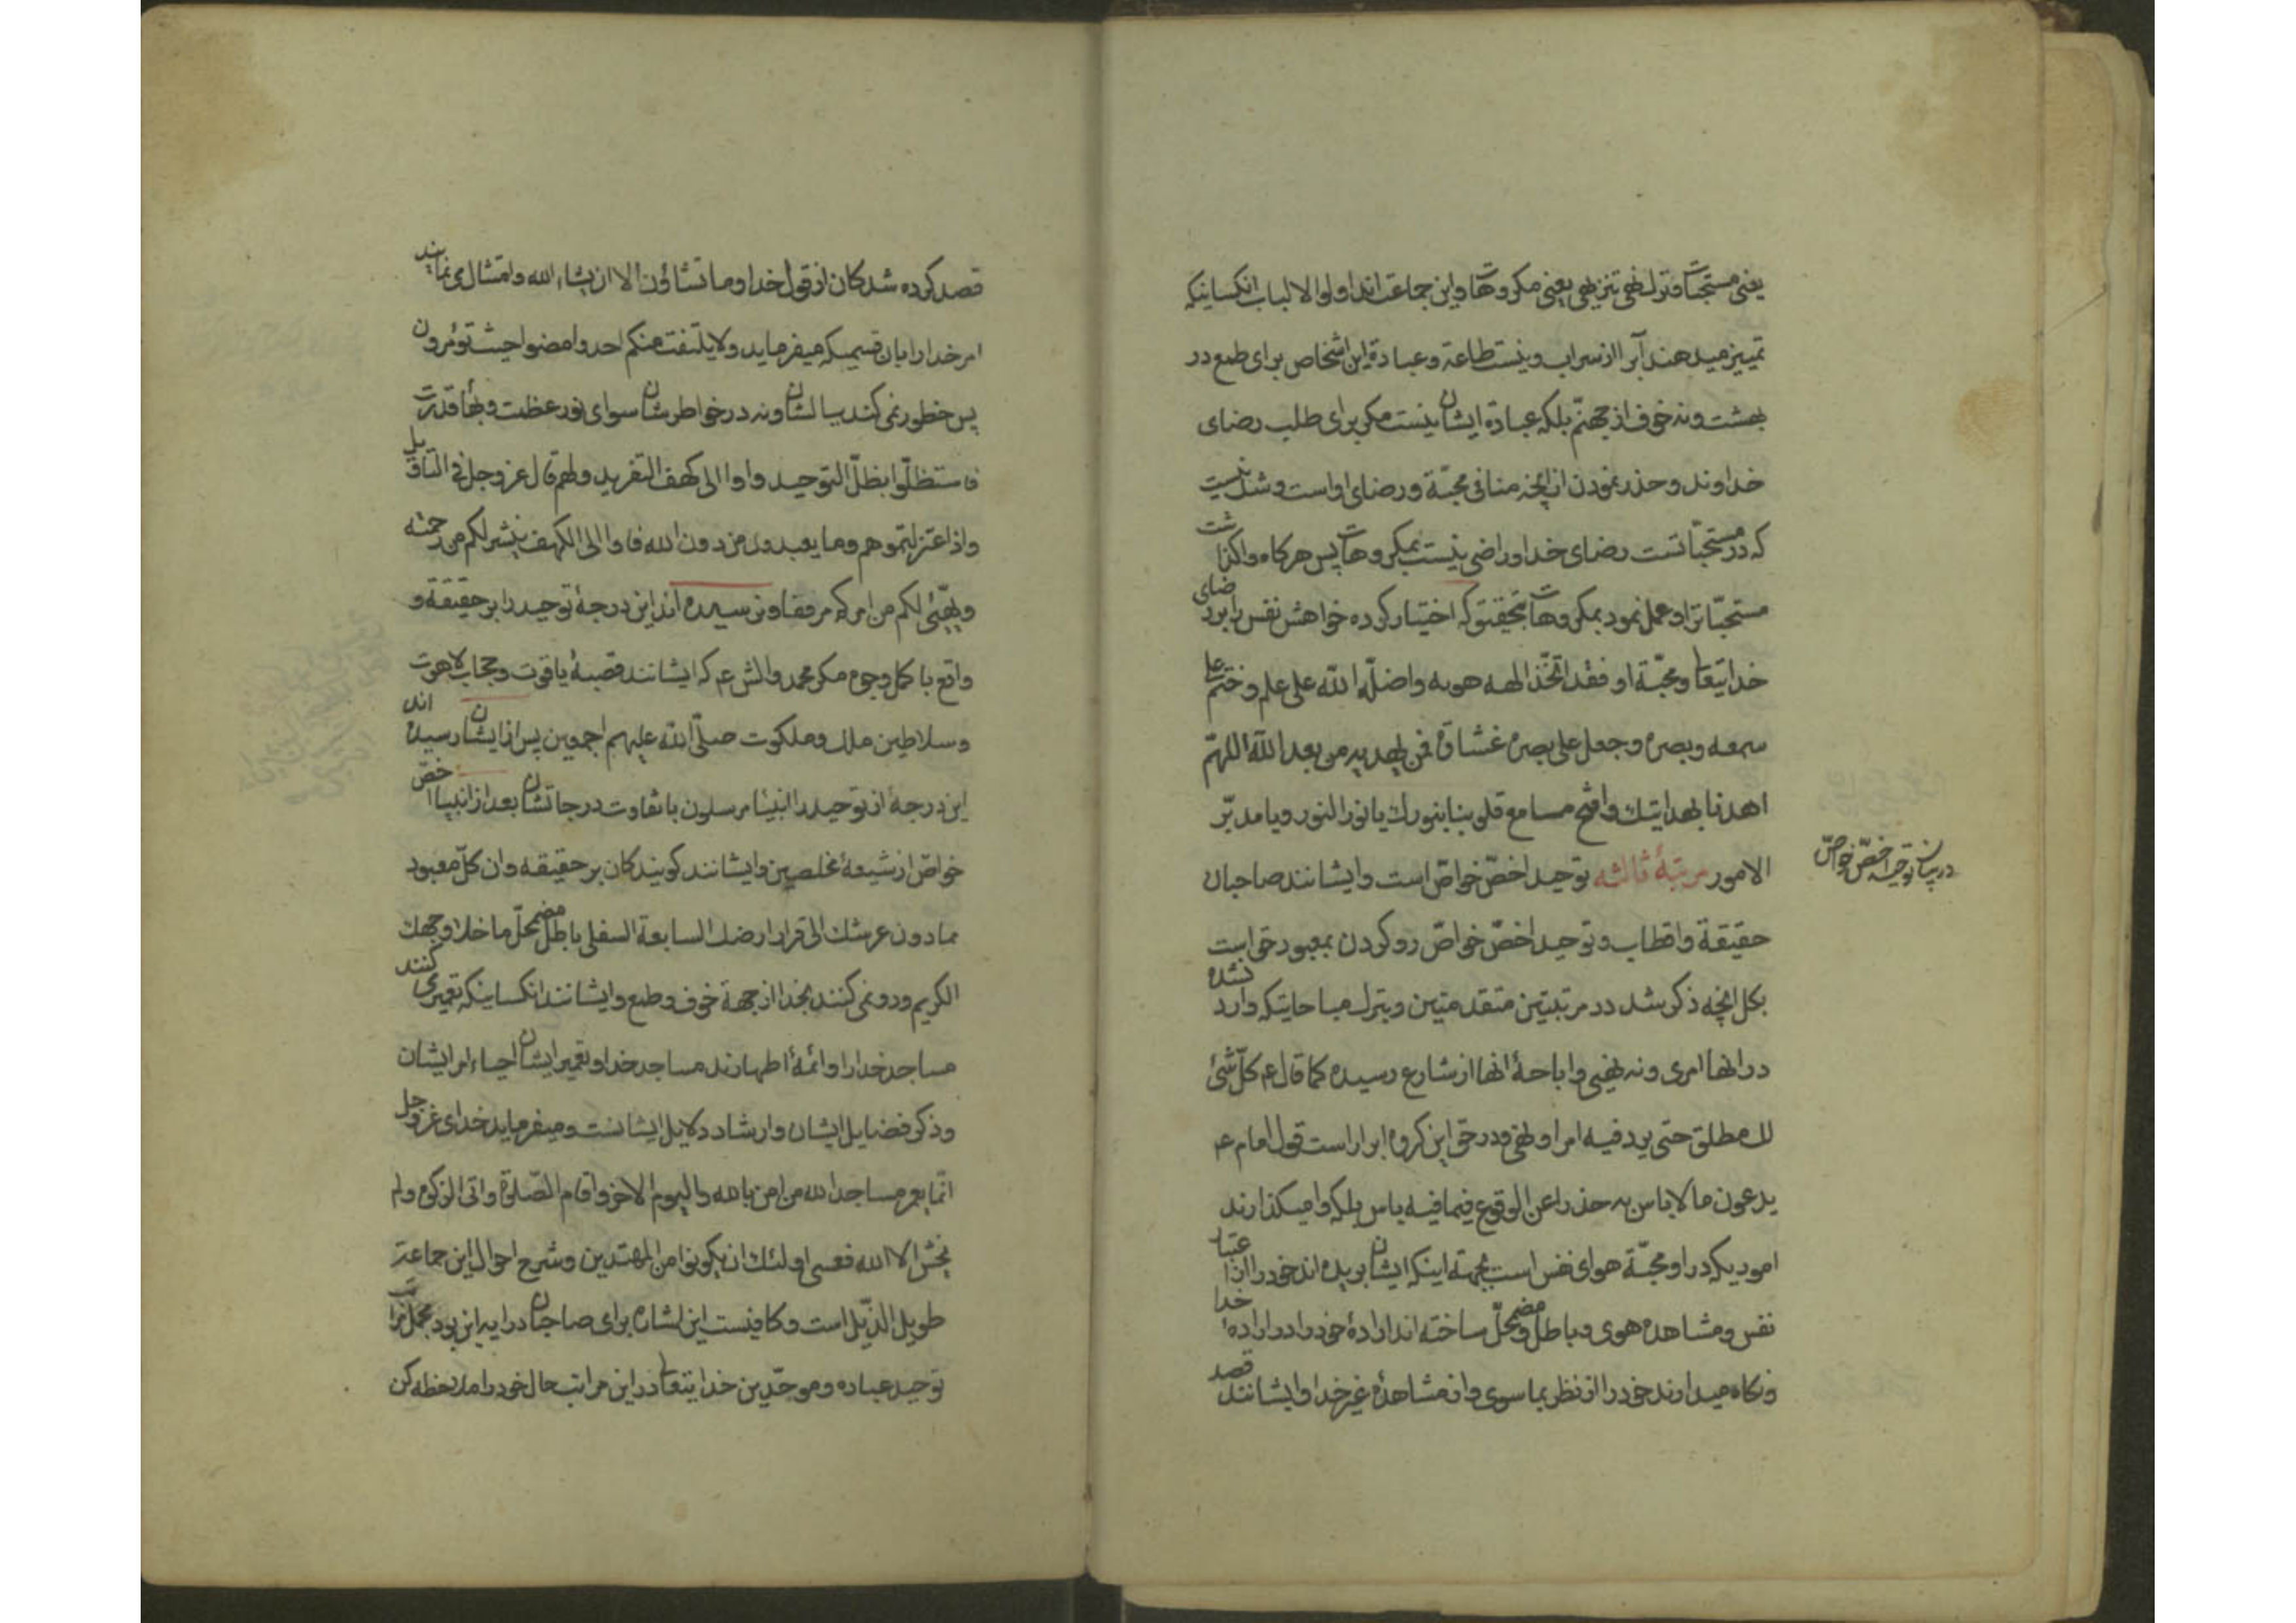 یعنی مستحبات و ترك نهی تنزیهی یعنی مکروهات و این جماعت اند اولوا الالباب انکسانیکه
تمییز میدهند آبرا از سراب و نیست طاعة و عبادة این اشخاص برای طمع در
بهشت و نه خوف از جهنّم بلکه عبادة ایشان نیست مکر برای طلب رضای
خداوند و حذر نمودن از آنچه منافی محبّة و رضای او است و شك نیست
که در مستحبّاتست رضای خدا و راضی نیست بمکروهات پس هرکاه واکذاشت
مستحبّاترا و عمل نمود بمکروهات بتحقیق که اختیار کرده خواهش نفس را بر رضای
خدایتعالی و محبّة او فقد اتّخذ الهه هویه و اضلّه اللّه علی علم و ختم علی
سمعه و بصره و جعل علی بصره غشاوة فمن یهدیه من بعد اللّه اللهمّ
اهدنا بهدایتك و افتح مسامع قلوبنا بنورك یا نور النور و یا مدبّر
الامور مرتبهٔ ثالثه توحید اخصّ خواصّ است و ایشانند صاحبان
در بیان توحید اخصّ خواصّ
حقیقة و اقطاب و توحید اخصّ خواصّ رو کردن بمعبود حق است
بکل انچه ذکر شد در مرتبتین متقدمتین و بترك مباحاتیکه وارد نشده
در انها امری و نه نهیی و اباحهٔ انها از شارع رسیده کما قال ع کلّ شئ
لك مطلق حتی یرد فیه امر او نهی و در حق این کروه ابرار است قول امام ع
یدعون ما لا باس به حذرا عن الوقوع فیما فیه باس بلکه وامیکذارند
اموریکه در او محبّة هوای نفس است بجهة اینکه ایشان بریده اند خود را از اعتبار
نفس و مشاهده هوی و باطل و مضمحلّ ساخته اند ارادهٔ خود را در ارادهٔ خدا
و نکاه میدارند خود را از نظر بما سوی و از مشاهدهٔ غیر خدا و ایشانند قصد
قصد کرده شدکان از قول خدا و ما تشاؤن الا ان یشاء الله و امتثال می نمایند
امر خدا را بان قسمیکه میفرماید و لا یلتفت منکم احد و امضوا حیث تؤمرون
پس خطور نمی کند ببالشان و نه در خواطرشان سوای نور عظمت و بهاء قدرت
فاستظلّوا بظلّ التوحید و اووا الی کهف التفرید و لهم قال عز و جل فی التاویل
و اذ اعتزلتموهم و ما یعبدون من دون الله فاووا الی الکهف ینشر لکم من رحمته
و یهیّئ لکم من امرکم مرفقا و نرسیده اند این درجهٔ توحید را بر حقیقة و
واقع باکمل وجوه مکر محمد و الش ع که ایشانند قصبهٔ یاقوت و حجاب لاهوت
و سلاطین ملك و ملکوت صلّی اللّه علیهم اجمعین پس از ایشان رسیده اند
این درجهٔ از توحید را انبیاء مرسلون با تفاوت درجاتشان بعد از انبیا اخصّ
خواصّ از شیعهٔ مخلصین و ایشانند کویندکان بر حقیقه و ان کلّ معبود
مما دون عرشك الی قرار ارضك السابعة السفلی باطل مضمحلّ ما خلا وجهك
الکریم و رو نمی کنند بخدا از جهة خوف و طمع و ایشانند انکسانیکه تعمیر می کنند
مساجد خدا را و ائمهٔ اطهارند مساجد خدا و تعمیر ایشان احیاء امر ایشان
و ذکر فضایل ایشان و ارشاد دلایل ایشانست و میفرماید خدای عزّ و جل
انّما یعمر مساجد الله من امن بالله و الیوم الاخر و اقام الصّلوة و اتی الزکوة و لم
یخش الا الله فعسی اولئك ان یکونوا من المهتدین و شرح احوال این جماعت
طویل الذّیل است و کافیست این اشاره برای صاحبان درایه این بود مجمل مراتب
توحید عباده و موحّدین خدایتعالی در این مراتب حال خود را ملاحظه کن